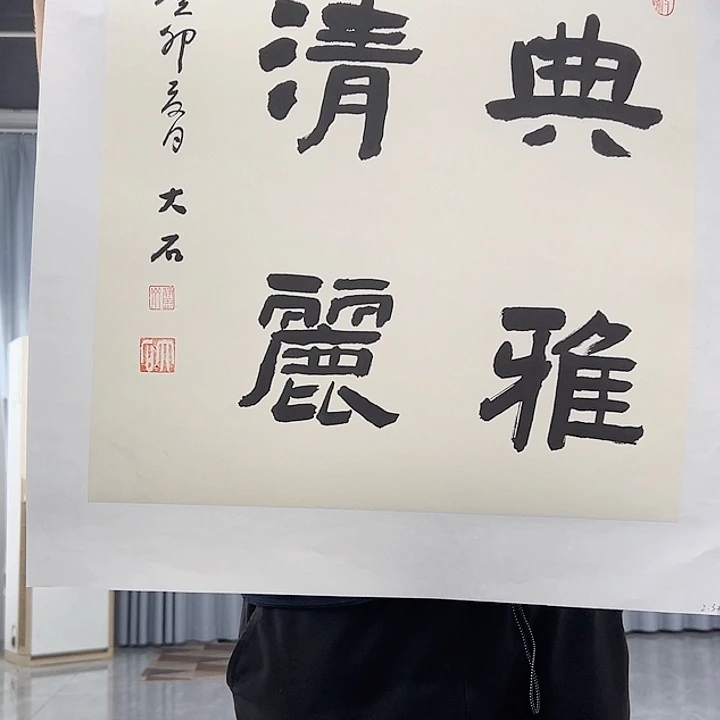 典雅
清麗
癸卯夏月 大石